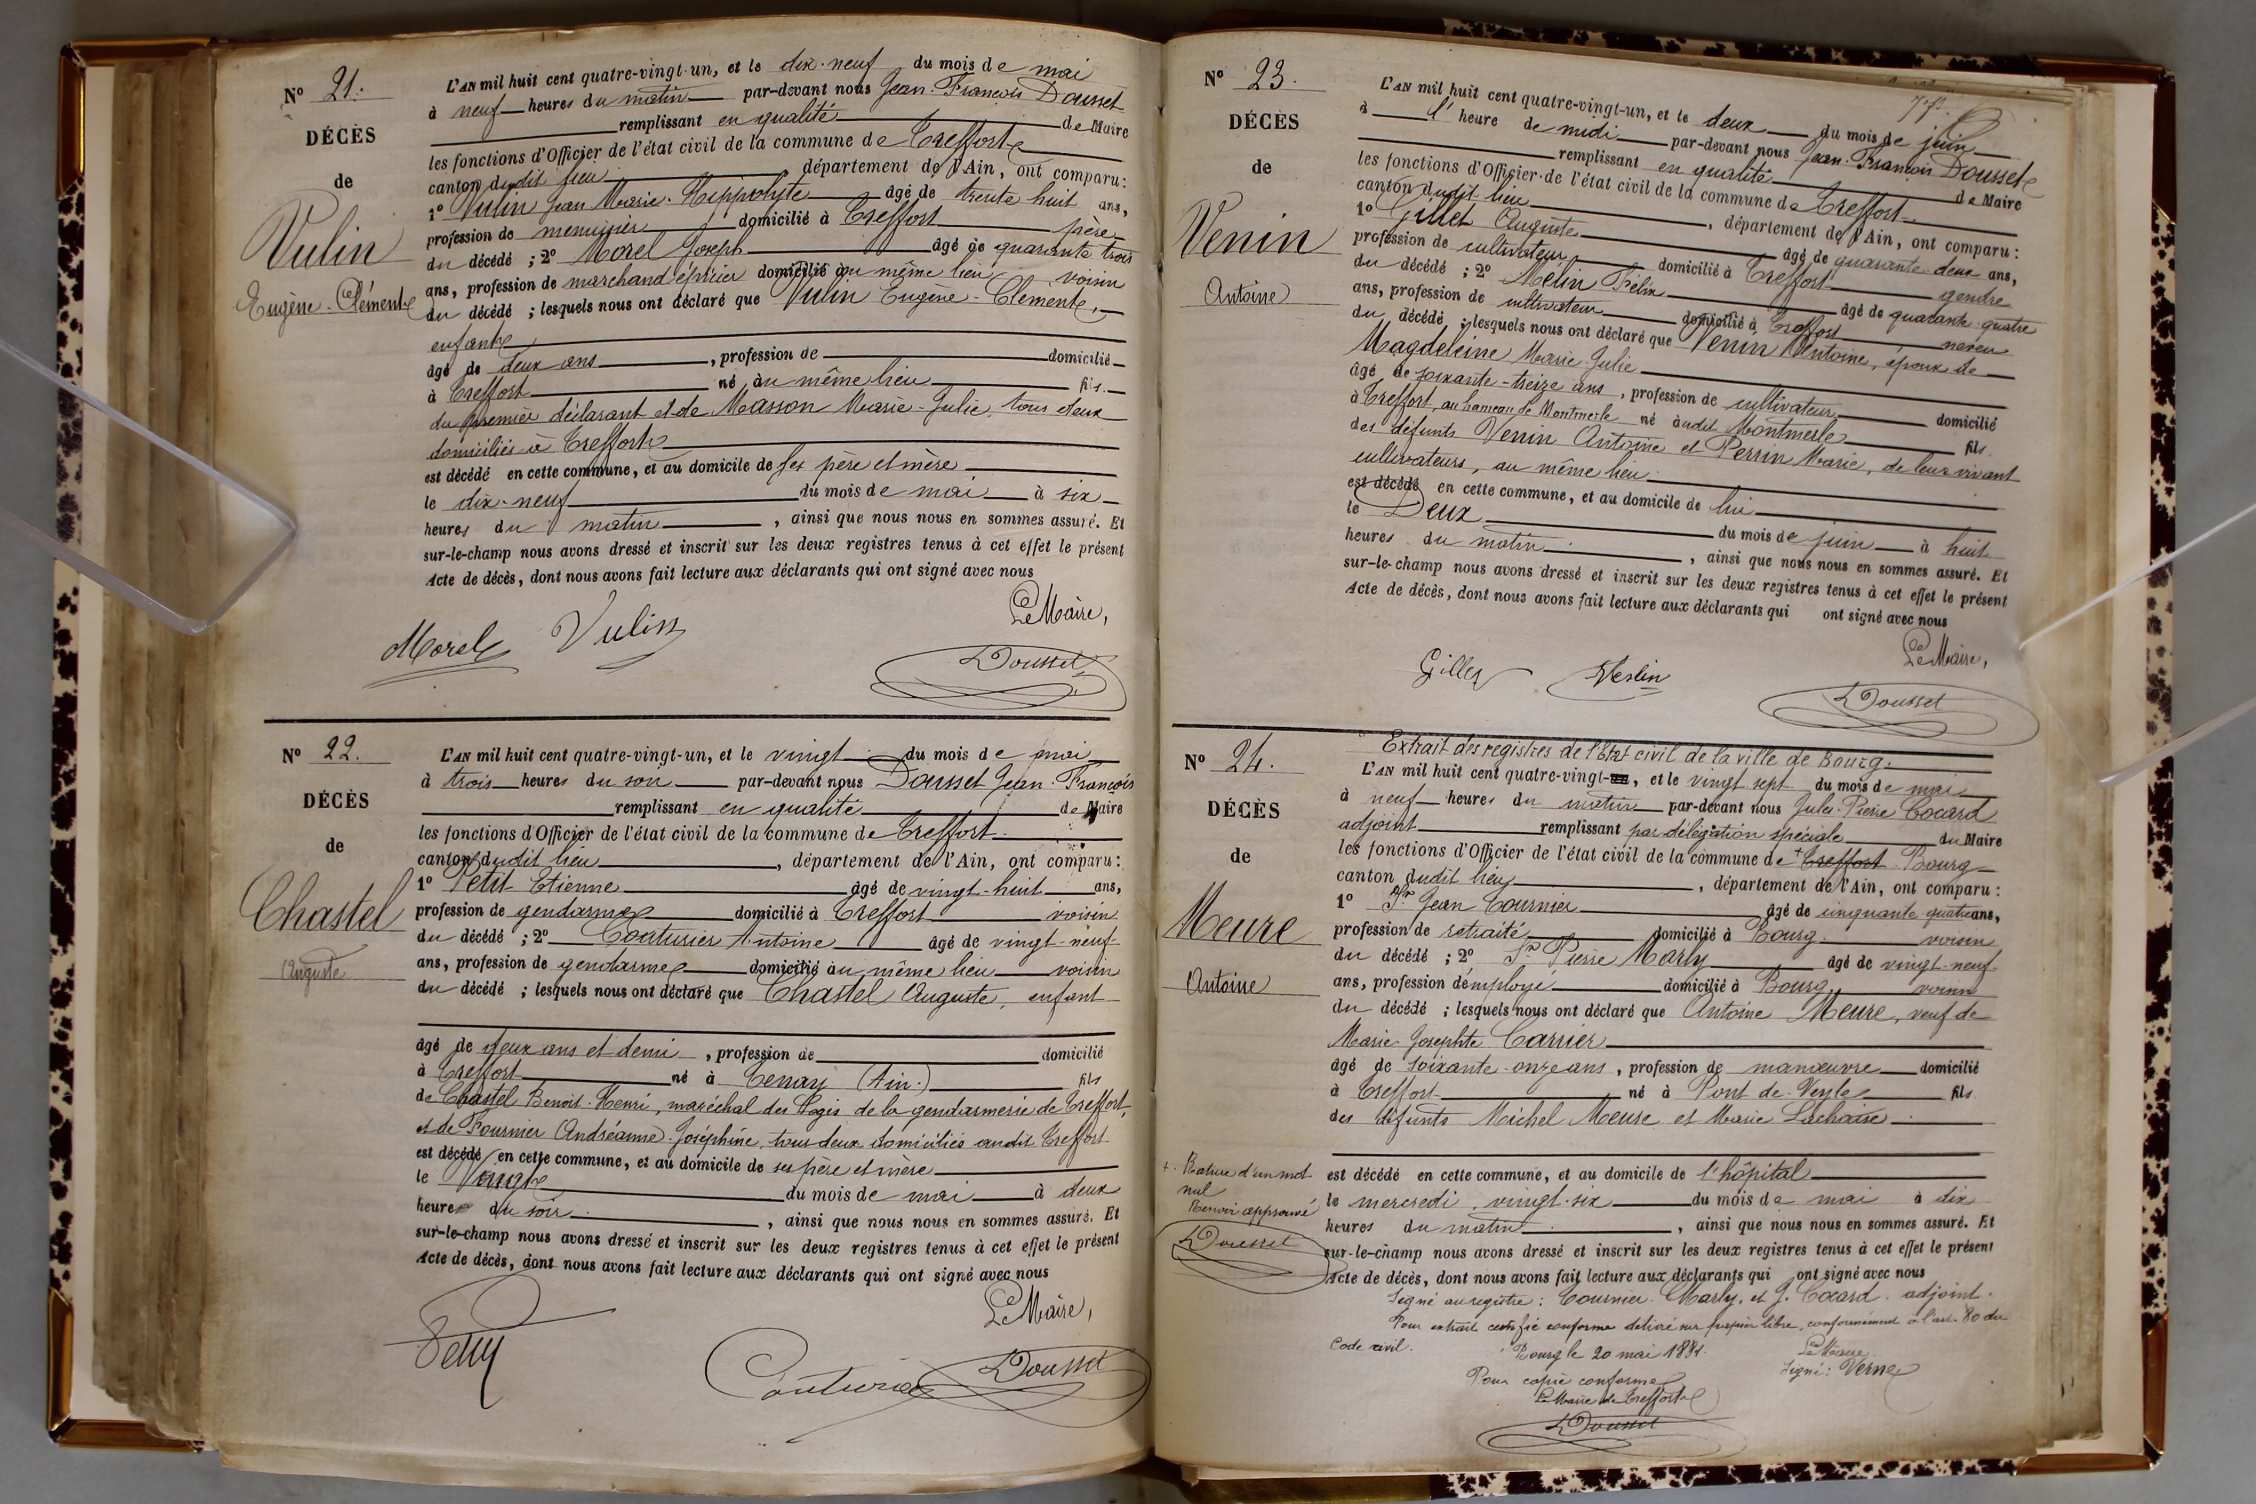 Nº 21.
DÉCÈS
de
Vulin
Eugène-Clément
L'AN mil huit cent quatre-vingt-un, et le dix-neuf du mois de mai
à neuf heures du matin par-devant nous Jean-François Dousset
remplissant en qualité de Maire
les fonctions d'Officier de l'état civil de la commune de Treffort
canton dudit lieu département de l'Ain, ont comparu:
1º Vulin Jean Marie-Hippolyte âgé de trente huit ans,
profession de menuisier domicilié à Treffort père
du décédé ; 2º Morel Joseph âgé de quarante trois
ans, profession de marchand épicier domicilié au même lieu voisin
du décédé ; lesquels nous ont déclaré que Vulin Eugène-Clément,
enfant
âgé de deux ans , profession de domicilié
à Treffort né au même lieu fils
du premier déclarant et de Masson Marie-Julie, tous deux
domiciliés à Treffort
est décédé en cette commune, et au domicile de ses père et mère
le dix-neuf du mois de mai à six
heures du matin , ainsi que nous nous en sommes assuré. Et
sur-le-champ nous avons dressé et inscrit sur les deux registres tenus à cet effet le présent
Acte de décès, dont nous avons fait lecture aux déclarants qui ont signé avec nous
Le Maire,
Morel Vulin
Dousset
Nº 22.
DÉCÈS
de
Chastel
Auguste
L'AN mil huit cent quatre-vingt-un, et le vingt du mois de mai
à trois heures du soir par-devant nous Dousset Jean-François
remplissant en qualité de Maire
les fonctions d'Officier de l'état civil de la commune de Treffort
canton dudit lieu , département de l'Ain, ont comparu:
1º Petit Etienne âgé de vingt-huit ans,
profession de gendarme domicilié à Treffort voisin
du décédé ; 2º Couturier Antoine âgé de vingt-neuf
ans, profession de gendarme domicilié au même lieu voisin
du décédé ; lesquels nous ont déclaré que Chastel Auguste, enfant
âgé de deux ans et demi , profession de domicilié
à Treffort né à Tenay (Ain.) fils
de Chastel Benoit-Henri, maréchal des logis de la gendarmerie de Treffort,
et de Fournier Andréanne-Joséphine, tous deux domiciliés audit Treffort
est décédé en cette commune, et au domicile de ses père et mère
le Vingt du mois de mai à deux
heures du soir , ainsi que nous nous en sommes assuré. Et
sur-le-champ nous avons dressé et inscrit sur les deux registres tenus à cet effet le présent
Acte de décès, dont nous avons fait lecture aux déclarants qui ont signé avec nous
Le Maire,
Petit
Couturier Dousset
Nº 23.
DÉCÈS
de
Venin
Antoine
L'AN mil huit cent quatre-vingt-un, et le deux du mois de juin
à l' heure de midi par-devant nous Jean-François Dousset
remplissant en qualité de Maire
les fonctions d'Officier de l'état civil de la commune de Treffort
canton dudit lieu , département de l'Ain, ont comparu:
1º Gillet Auguste âgé de quarante-deux ans,
profession de cultivateur domicilié à Treffort gendre
du décédé ; 2º Melin Félix âgé de quarante-quatre
ans, profession de cultivateur domicilié à Treffort neveu
du décédé ; lesquels nous ont déclaré que Venin Antoine, époux de
Magdeleine Marie-Julie
âgé de soixante-treize ans , profession de cultivateur domicilié
à Treffort, au hameau de Montmerle né audit Montmerle fils
des défunts Venin Antoine et Perrin Marie, de leur vivant
cultivateurs, au même lieu
est décédé en cette commune, et au domicile de lui
le Deux du mois de juin à huit
heures du matin , ainsi que nous nous en sommes assuré. Et
sur-le-champ nous avons dressé et inscrit sur les deux registres tenus à cet effet le présent
Acte de décès, dont nous avons fait lecture aux déclarants qui ont signé avec nous
Le Maire,
Dousset
Nº 24.
DÉCÈS
de
Meure
Antoine
Extrait des registres de l'Etat civil de la ville de Bourg.
L'AN mil huit cent quatre-vingt-un, et le vingt sept du mois de mai
à neuf heures du matin par-devant nous Jules-Pierre Cocard
adjoint remplissant par délégation spéciale du Maire
les fonctions d'Officier de l'état civil de la commune de + Treffort Bourg
canton dudit lieu , département de l'Ain, ont comparu:
1º Sr Jean Tournier âgé de cinquante quatre ans,
profession de retraité domicilié à Bourg voisin
du décédé ; 2º Sr Pierre Marly âgé de vingt-neuf
ans, profession d'employé domicilié à Bourg voisin
du décédé ; lesquels nous ont déclaré que Antoine Meure, veuf de
Marie Josephte Carrier
âgé de soixante-onze ans , profession de manœuvre domicilié
à Treffort né à Pont de Veyle fils
des défunts Michel Meure et Marie Lachaise
est décédé en cette commune, et au domicile de l'hôpital
le mercredi vingt-six du mois de mai à dix
heures du matin , ainsi que nous nous en sommes assuré. Et
sur-le-champ nous avons dressé et inscrit sur les deux registres tenus à cet effet le présent
Acte de décès, dont nous avons fait lecture aux déclarants qui ont signé avec nous
Signé au registre: Tournier. Marly. et J. Cocard. adjoint.
Pour extrait certifié conforme délivré sur papier libre, conformément à l'art. 80 du
Code civil. Bourg le 20 mai 1881. Le Maire
Signé: Verne
Pour copie conforme
Le Maire de Treffort
Dousset
+ Rature d'un mot
nul
Renvoi approuvé
Dousset